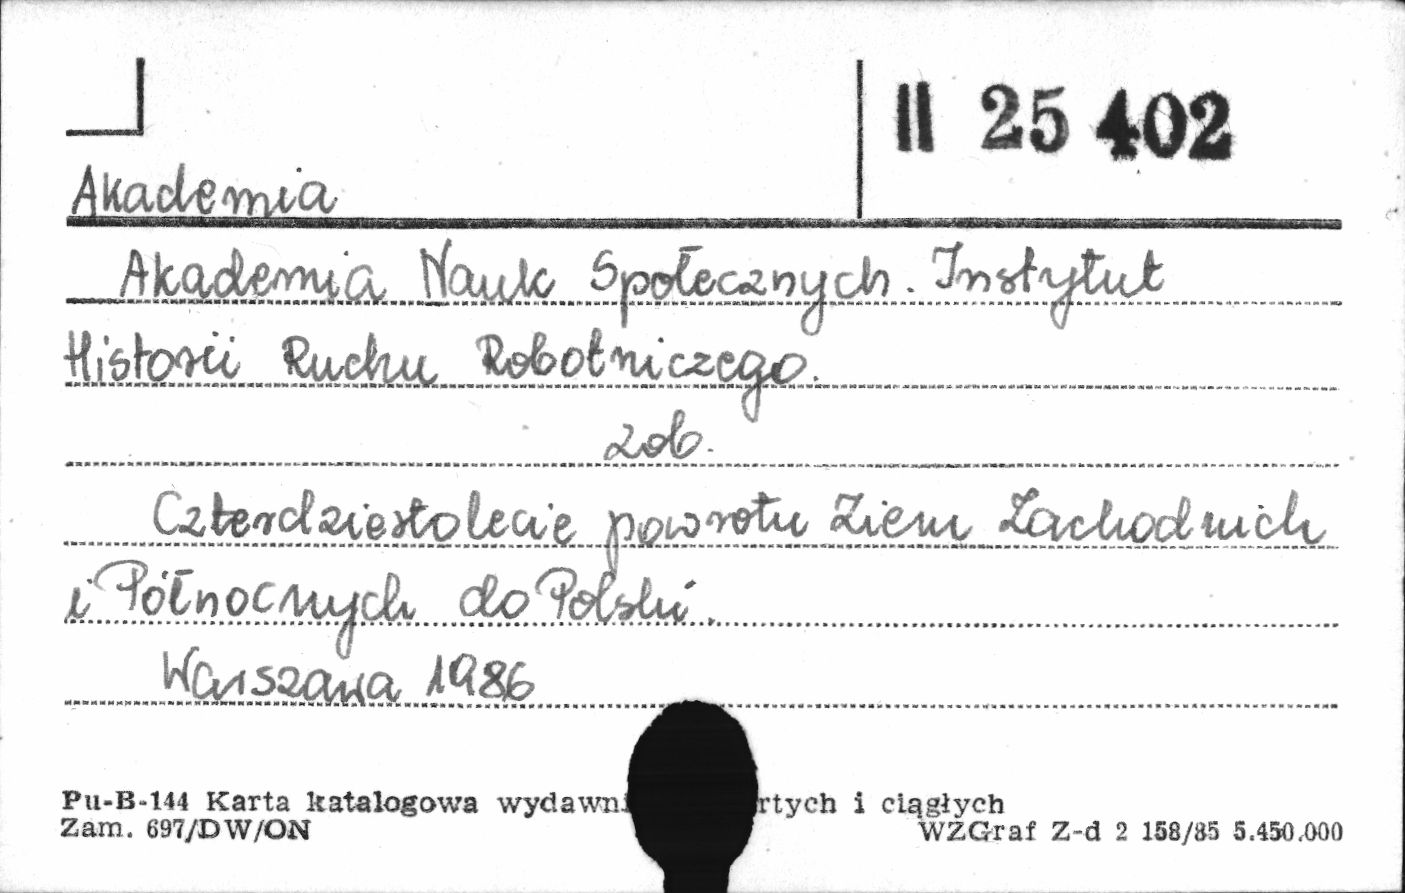 II 25 402
Akademia
Akademia Nauk Społecznych. Instytut
Historii Ruchu Robotniczego.
zob.
Czterdziestolecie powrotu Ziem Zachodnich
i Północnych do Polski.
Warszawa 1986
Pu-B-144 Karta katalogowa wydawni rtych i ciągłych
Zam. 697/DW/ON WZGraf Z-d 2 158/85 5.450.000